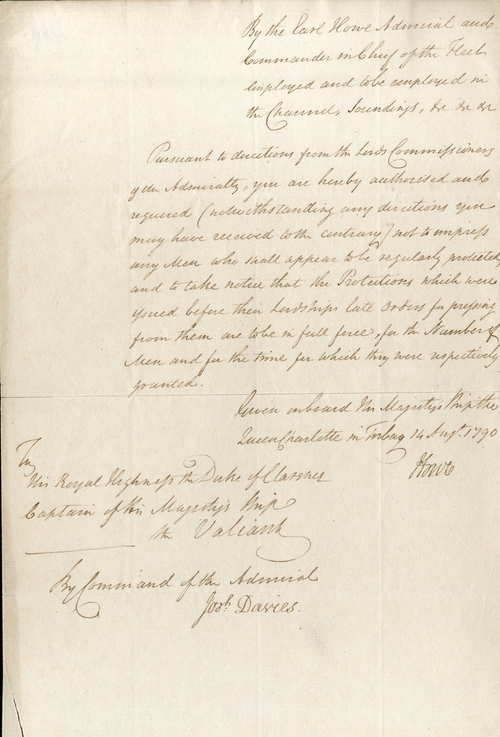 By the Earl Howe Admiral and
Commander in Chief of the Fleet
employed and to be employed in
the Channel, Soundings, &c &c &c
Pursuant to directions from the Lords Commissioners
of the Admiralty, you are hereby authorised and
required (notwithstanding any directions you
may have received to the contrary) not to impress
any Men who shall appear to be regularly protected
and to take notice that the Protections which were
issued before their Lordships late Orders for pressing
from them are to be in full force, for the Number of
Men and for the time for which they were respectively
granted.
Given onboard His Majesty's Ship the
Queen Charlotte in Torbay 14 Augt. 1790
Howe
To
His Royal Highness the Duke of Clarence
Captain of His Majesty's Ship
the Valiant
By Command of the Admiral
Josh. Davies.